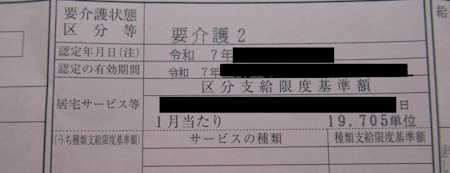 要介護状態
区分等
要介護2
認定年月日(注)
令和 7年
認定の有効期間
令和 7年
区分支給限度基準額
居宅サービス等
日
1月当たり 19,705単位
(うち種類支給限度基準額)
サービスの種類 種類支給限度基準額
給